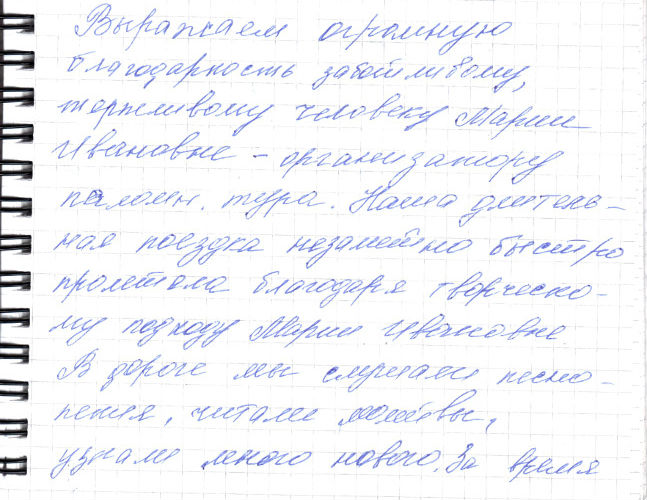 Выражаем огромную
благодарность заботливому,
терпеливому человеку Марии
Ивановне - организатору
паломн. тура. Наша длитель-
ная поездка незаметно быстро
пролетела благодаря творческо-
му подходу Марии Ивановне.
В дороге мы слушали песно-
пения, читали молитвы,
узнали много нового. За время